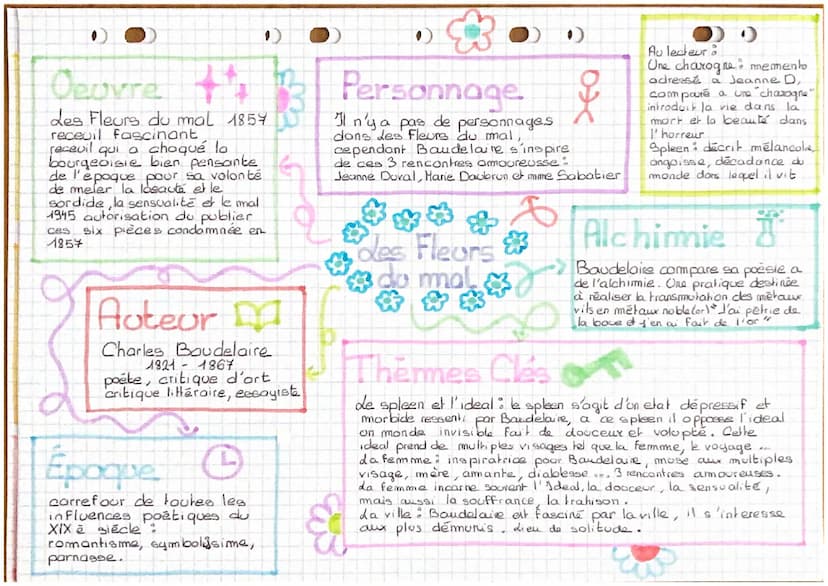 Oeuvre
Les Fleurs du mal 1857
receuil fascinant,
receuil qui a choqué la
bourgeoisie bien pensante
de l'époque pour sa volonté
de meler la beauté et le
sordide, la sensualité et le mal
1945 autorisation du publier
ces six pièces condomnée en
1857
Personnage
Il n'y a pas de personnages
dans Les Fleurs du mal,
cependant Baudelaire s'inspire
de ces 3 rencontres amoureusse :
Jeanne Duval, Marie Daubrun et mme Sabatier
Au lecteur :
Une charogne : memento
adressé a Jeanne D,
comparé a une "charogne"
introduit la vie dans la
mort et la beauté dans
l'horreur
Spleen : décrit mélancolie,
angoisse, décadance du
monde dans lequel il vit
Les Fleurs
du mal
Alchimie
Baudelaire compare sa poésie a
de l'alchimie. Une pratique destinée
à réaliser la transmutation des métaux
vils en métaux noble (or) "J'ai pétrie de
la boue et j'en ai fait de l'or"
Auteur
Charles Baudelaire
1821 - 1867
poéte, critique d'art
critique littéraire, essayiste
Thèmes Clés
Le spleen et l'ideal : le spleen s'agit d'un etat dépressif et
morbide ressenti par Baudelaire, a ce spleen il oppose l'idéal
un monde invisible fait de douceur et volupté. Cette
ideal prend de multiples visages tel que la femme, le voyage ...
La femme : inspiratrice pour Baudelaire, muse aux multiples
visage, mère, amante, diablesse ... 3 rencontres amoureuses.
La femme incarne souvent l'Ideal, la douceur, la sensualité,
mais aussi la souffrance, la trahison.
La ville : Baudelaire est fasciné par la ville, il s'interesse
aux plus démunis. Lieu de solitude.
Époque
carrefour de toutes les
influences poètiques du
XIX è siècle :
romantisme, symbolisime,
parnasse.